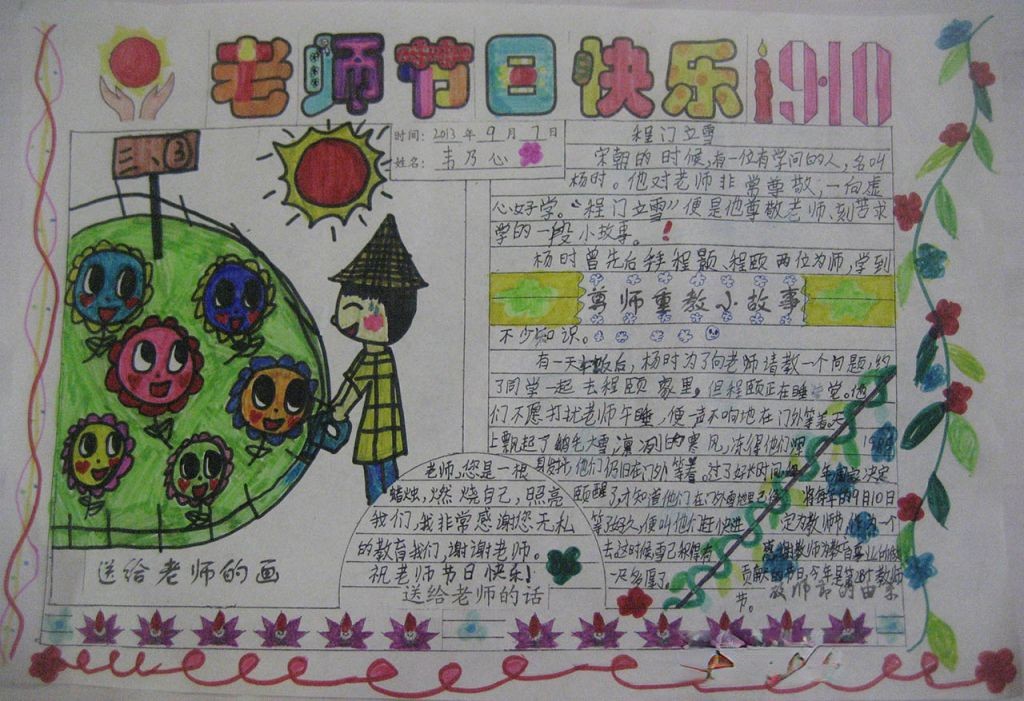 老师节日快乐 9.10
三、③
时间：2013年9月7日
姓名：韦乃心
程门立雪
宋朝的时候，有一位有学问的人，名叫
杨时。他对老师非常尊敬，一向虚
心好学。“程门立雪”便是他尊敬老师、刻苦求
学的一段小故事。
杨时曾先后拜程颢、程颐两位为师，学到
尊师重教小故事
不少知识。
有一天午饭后，杨时为了向老师请教一个问题，约
了同学一起去程颐家里，但程颐正在睡觉。他
们不愿打扰老师午睡，便声不响地在门外等着。天
上飘起了鹅毛大雪，凛冽的寒风，冻得他们
他们仍旧在门外等着。过了好长时间
颐醒了才知道他们在门外
等好久，便叫他们赶快进
去这时候雪已积得有
一尺多厚了。
年国家决定
将每年的9月10日
定为教师节，作为一个
感谢教师为教育事业
贡献的节日，今年是第28个教师
节。
教师节的由来
老师，您是一根
蜡烛，燃烧自己，照亮
我们，我非常感谢您无私
的教育我们，谢谢老师。
祝老师节日快乐！
送给老师的话
送给老师的画